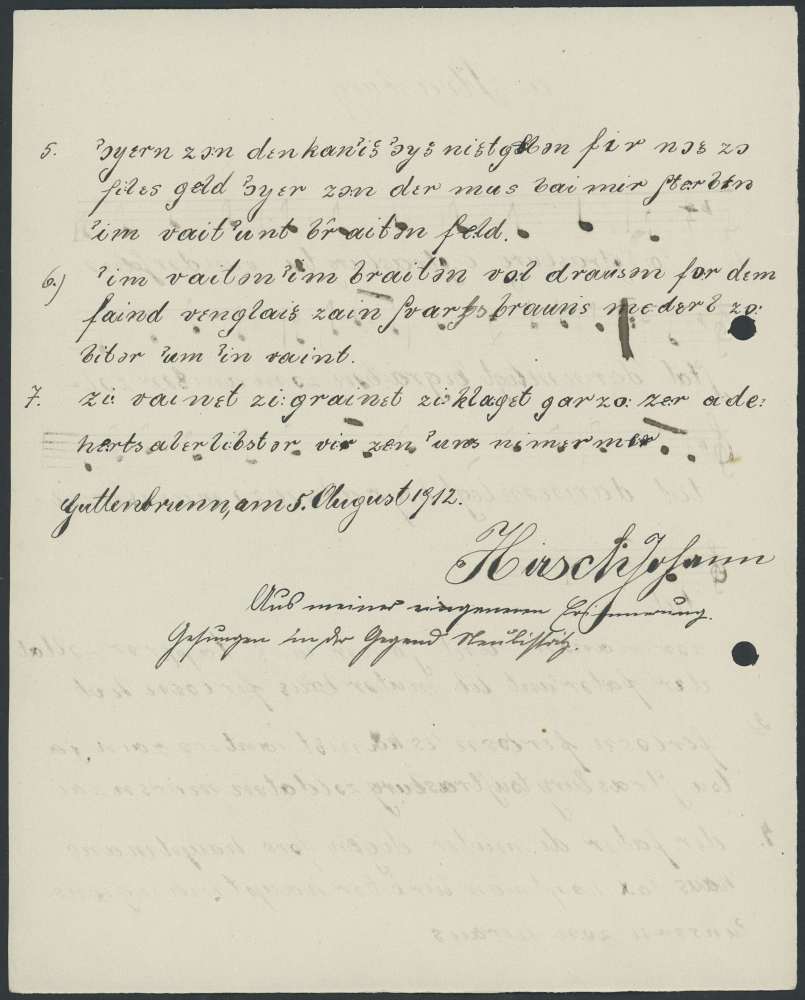 5. ʾɔyɛrn zɔn den kanʾiš ʾɔyš ništ gebən fir nɔš zɔ
files geld ʾɔyer zɔn der mus bai mir sterbɛn
ʾim vait ʾunt braitən feld.
6.) ʾim vaitən ʾim braitən vol drausən for dem
faind venglaiš zain švartsbrauns medɛrl zo:
bitər ʾum ʾin vaint.
7. zi: vainet zi: grainet zi: klaget gar zo: zer ade:
herts aler libstər vir zen ʾuns nimer mer.
Guttenbrunn, am 5. August 1912.
Hirsch Johann
Aus meiner eingenenen Erinnerung.
Gesungen in der Gegend Neubistritz.